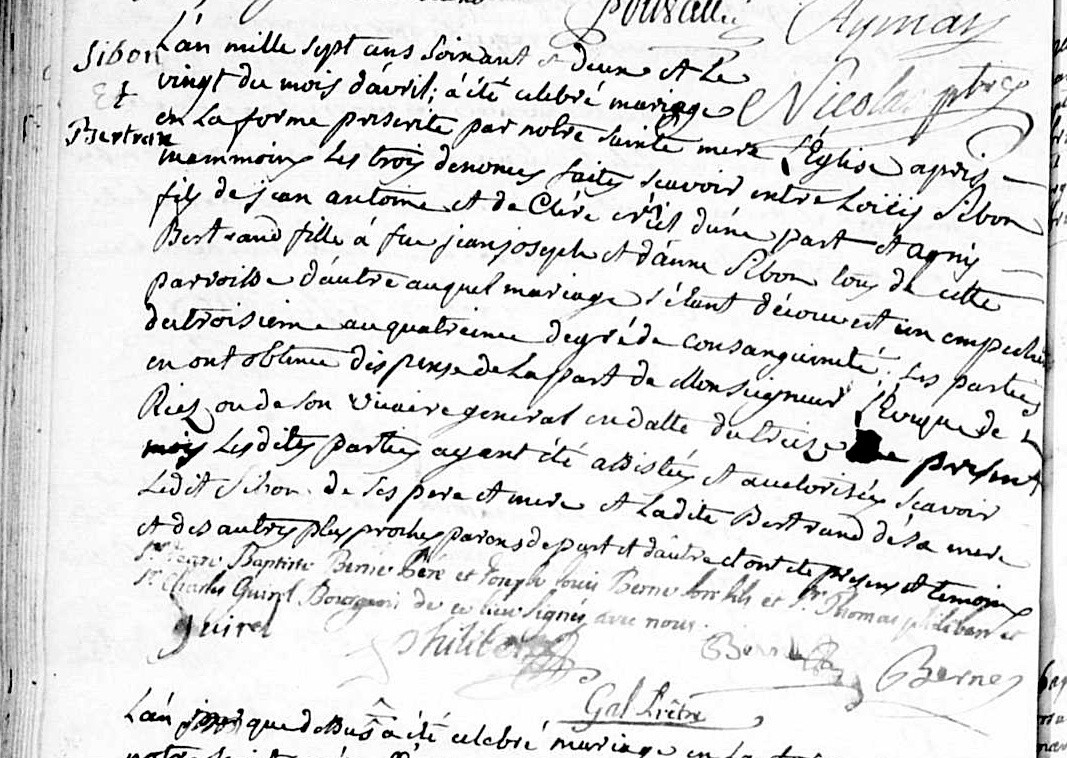 Aymar
Sibon
Et
Bertran
L'an mille sept cens soixant et deux et le
vingt du mois d'avril; a été celebré mariage
Nicolas ptre
en la forme prescrite par notre sainte mere l'Église apris
neammoins les trois denonces faites scavoir entre Loüis Sibon
fils de jean antoine et de Clére d'une part et agnis
Bertrand fille á fue jean joseph et d'anne Sibon tous de cette
parroisse d'autre auquel mariage s'étant découvert un empeche
du troisieme au quatrieme degré de consanguinité. Les parties
en ont obtenue dispense de la part de Monseigneur l'Evêque de
Riez ou de son vicaire general en datte du treize present
mois Lesdites parties ayant été assistées et auctorisées scavoir
Ledit Sibon de ses pere et mere et Ladite Bertrand de sa mere
et des autres plus proches parens de part et d'autre et ont été presens et temoins
Sr Jean Baptiste Berne Pere et Joseph louis Berne son fils et Sr Thomas philibert et
Sr Charles Guirel Bourgeois de ce lieu signés avec nous.
Guirel
philibert
Berne
Bernes
Gal Prêtre
L'án que dessus á été celebré mariage en la